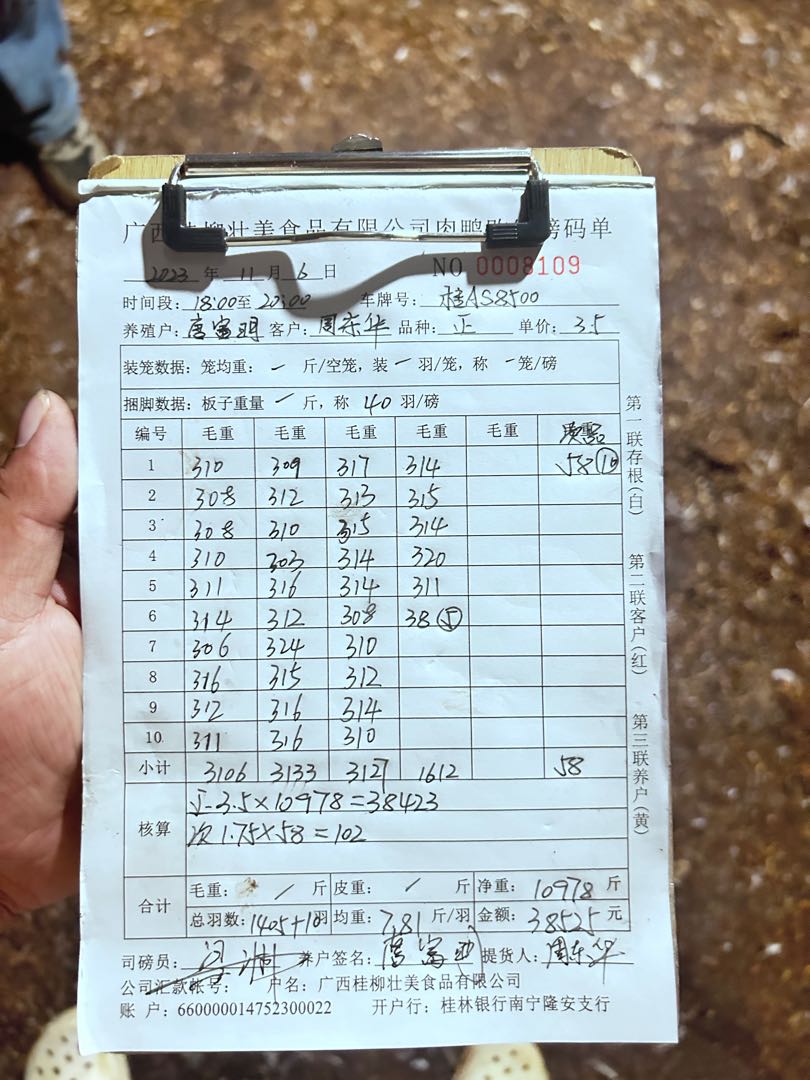 广西桂柳壮美食品有限公司肉鸭 磅码单
2023 年 11 月 6 日 NO 0008109
时间段: 18:00至 20:00 车牌号: 桂AS8500
养殖户: 唐富明 客户: 周东华 品种: 正 单价: 3.5
装笼数据: 笼均重: 一 斤/空笼, 装 一 羽/笼, 称 一 笼/磅
捆脚数据: 板子重量 一 斤, 称 40 羽/磅
编号 毛重 毛重 毛重 毛重 毛重
1 310 309 317 314 58⑩
2 308 312 313 315
3 308 310 315 314
4 310 303 314 320
5 311 316 314 311
6 314 312 308 38⑤
7 306 324 310
8 316 315 312
9 312 316 314
10 311 316 310
小计 3106 3133 3127 1612 58
核算
正 3.5×10978=38423
次 1.75×58=102
合计
毛重: / 斤 皮重: / 斤 净重: 10978 斤
总羽数: 1405+10羽 均重: 7.81 斤/羽 金额: 38525 元
司磅员: 养户签名: 唐富 提货人: 周东华
公司汇款帐号: 户名: 广西桂柳壮美食品有限公司
账 户: 660000014752300022 开户行: 桂林银行南宁隆安支行
第一联存根(白)
第二联客户(红)
第三联养户(黄)